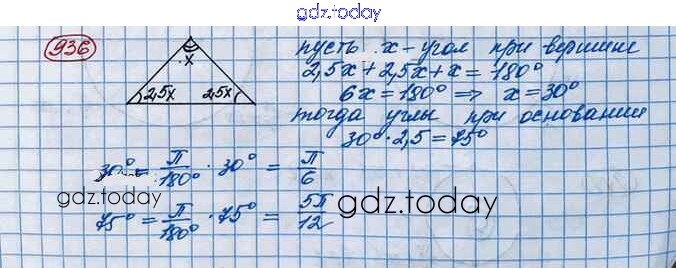 gdz.today
936
x
2,5x 2,5x
пусть x - угол при вершине
2,5x + 2,5x + x = 180°
6x = 180° => x = 30°
тогда углы при основании
30° · 2,5 = 75°
30° = π/180° · 30° = π/6
gdz.today
75° = π/180° · 75° = 5π/12
gdz.today